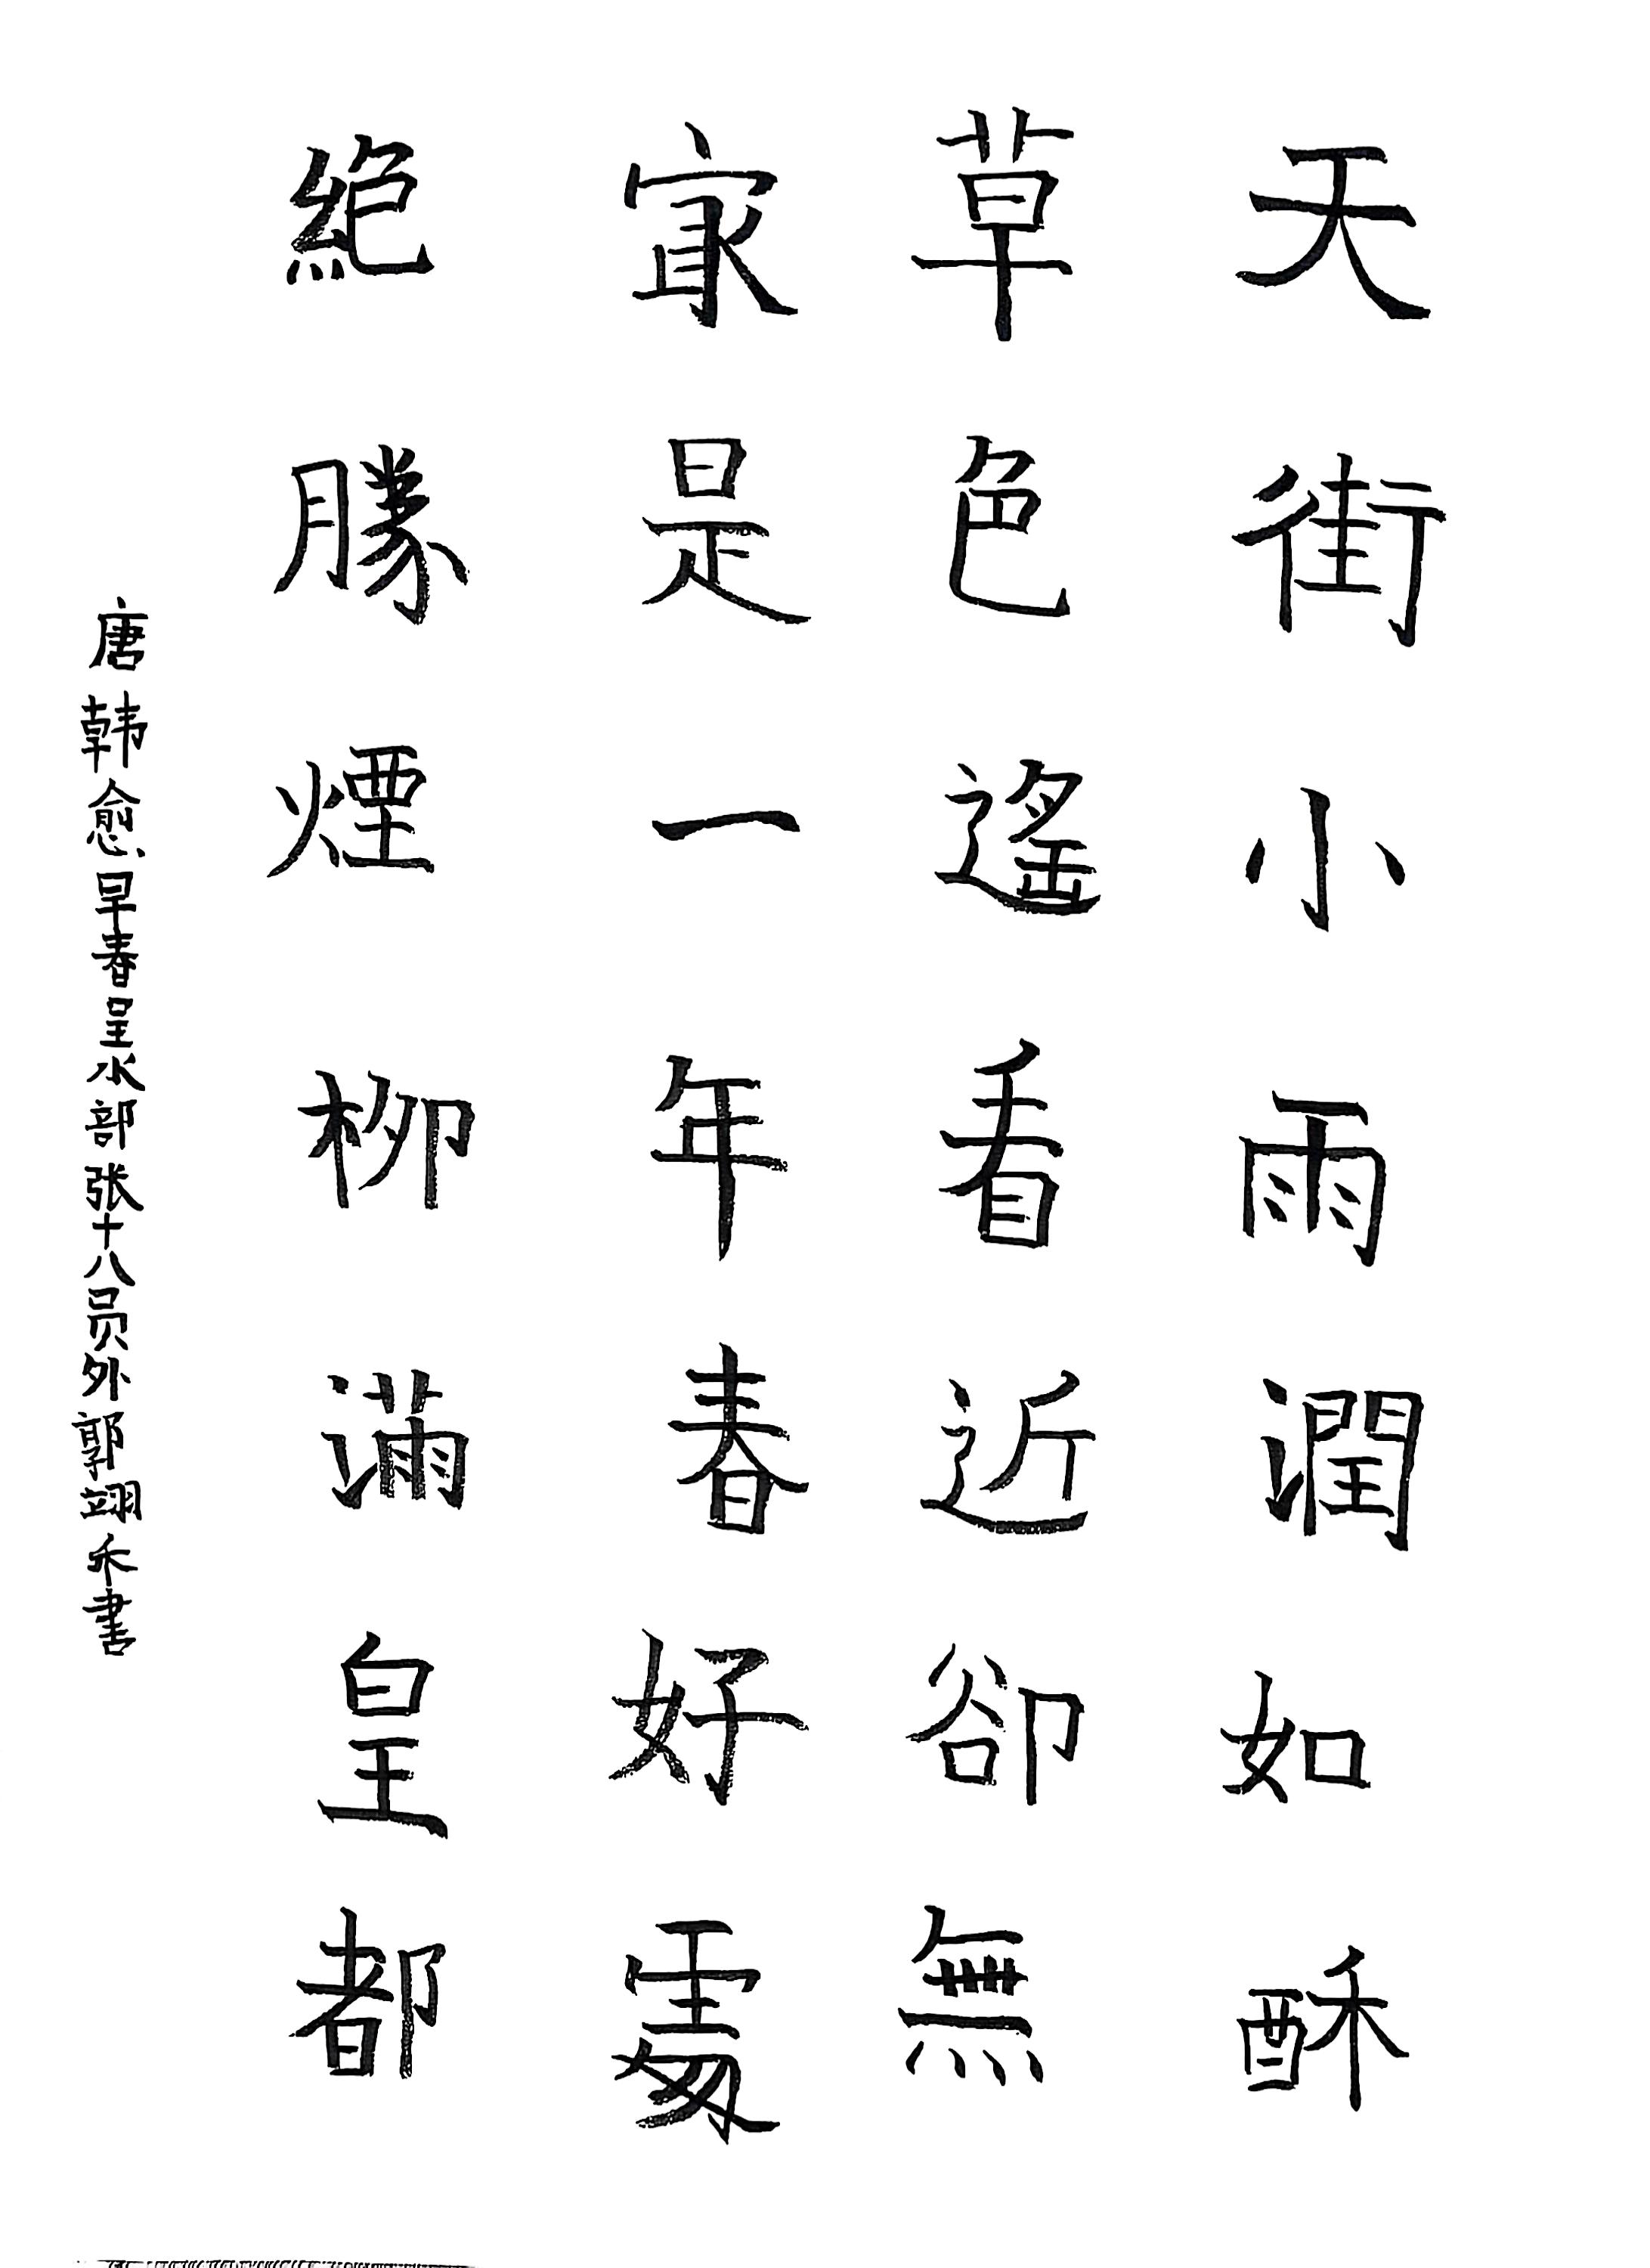 天街小雨潤如酥
草色遙看近卻無
冣是一年春好處
絕勝煙柳滿皇都
唐韩愈早春呈水部张十八员外郭翊禾書